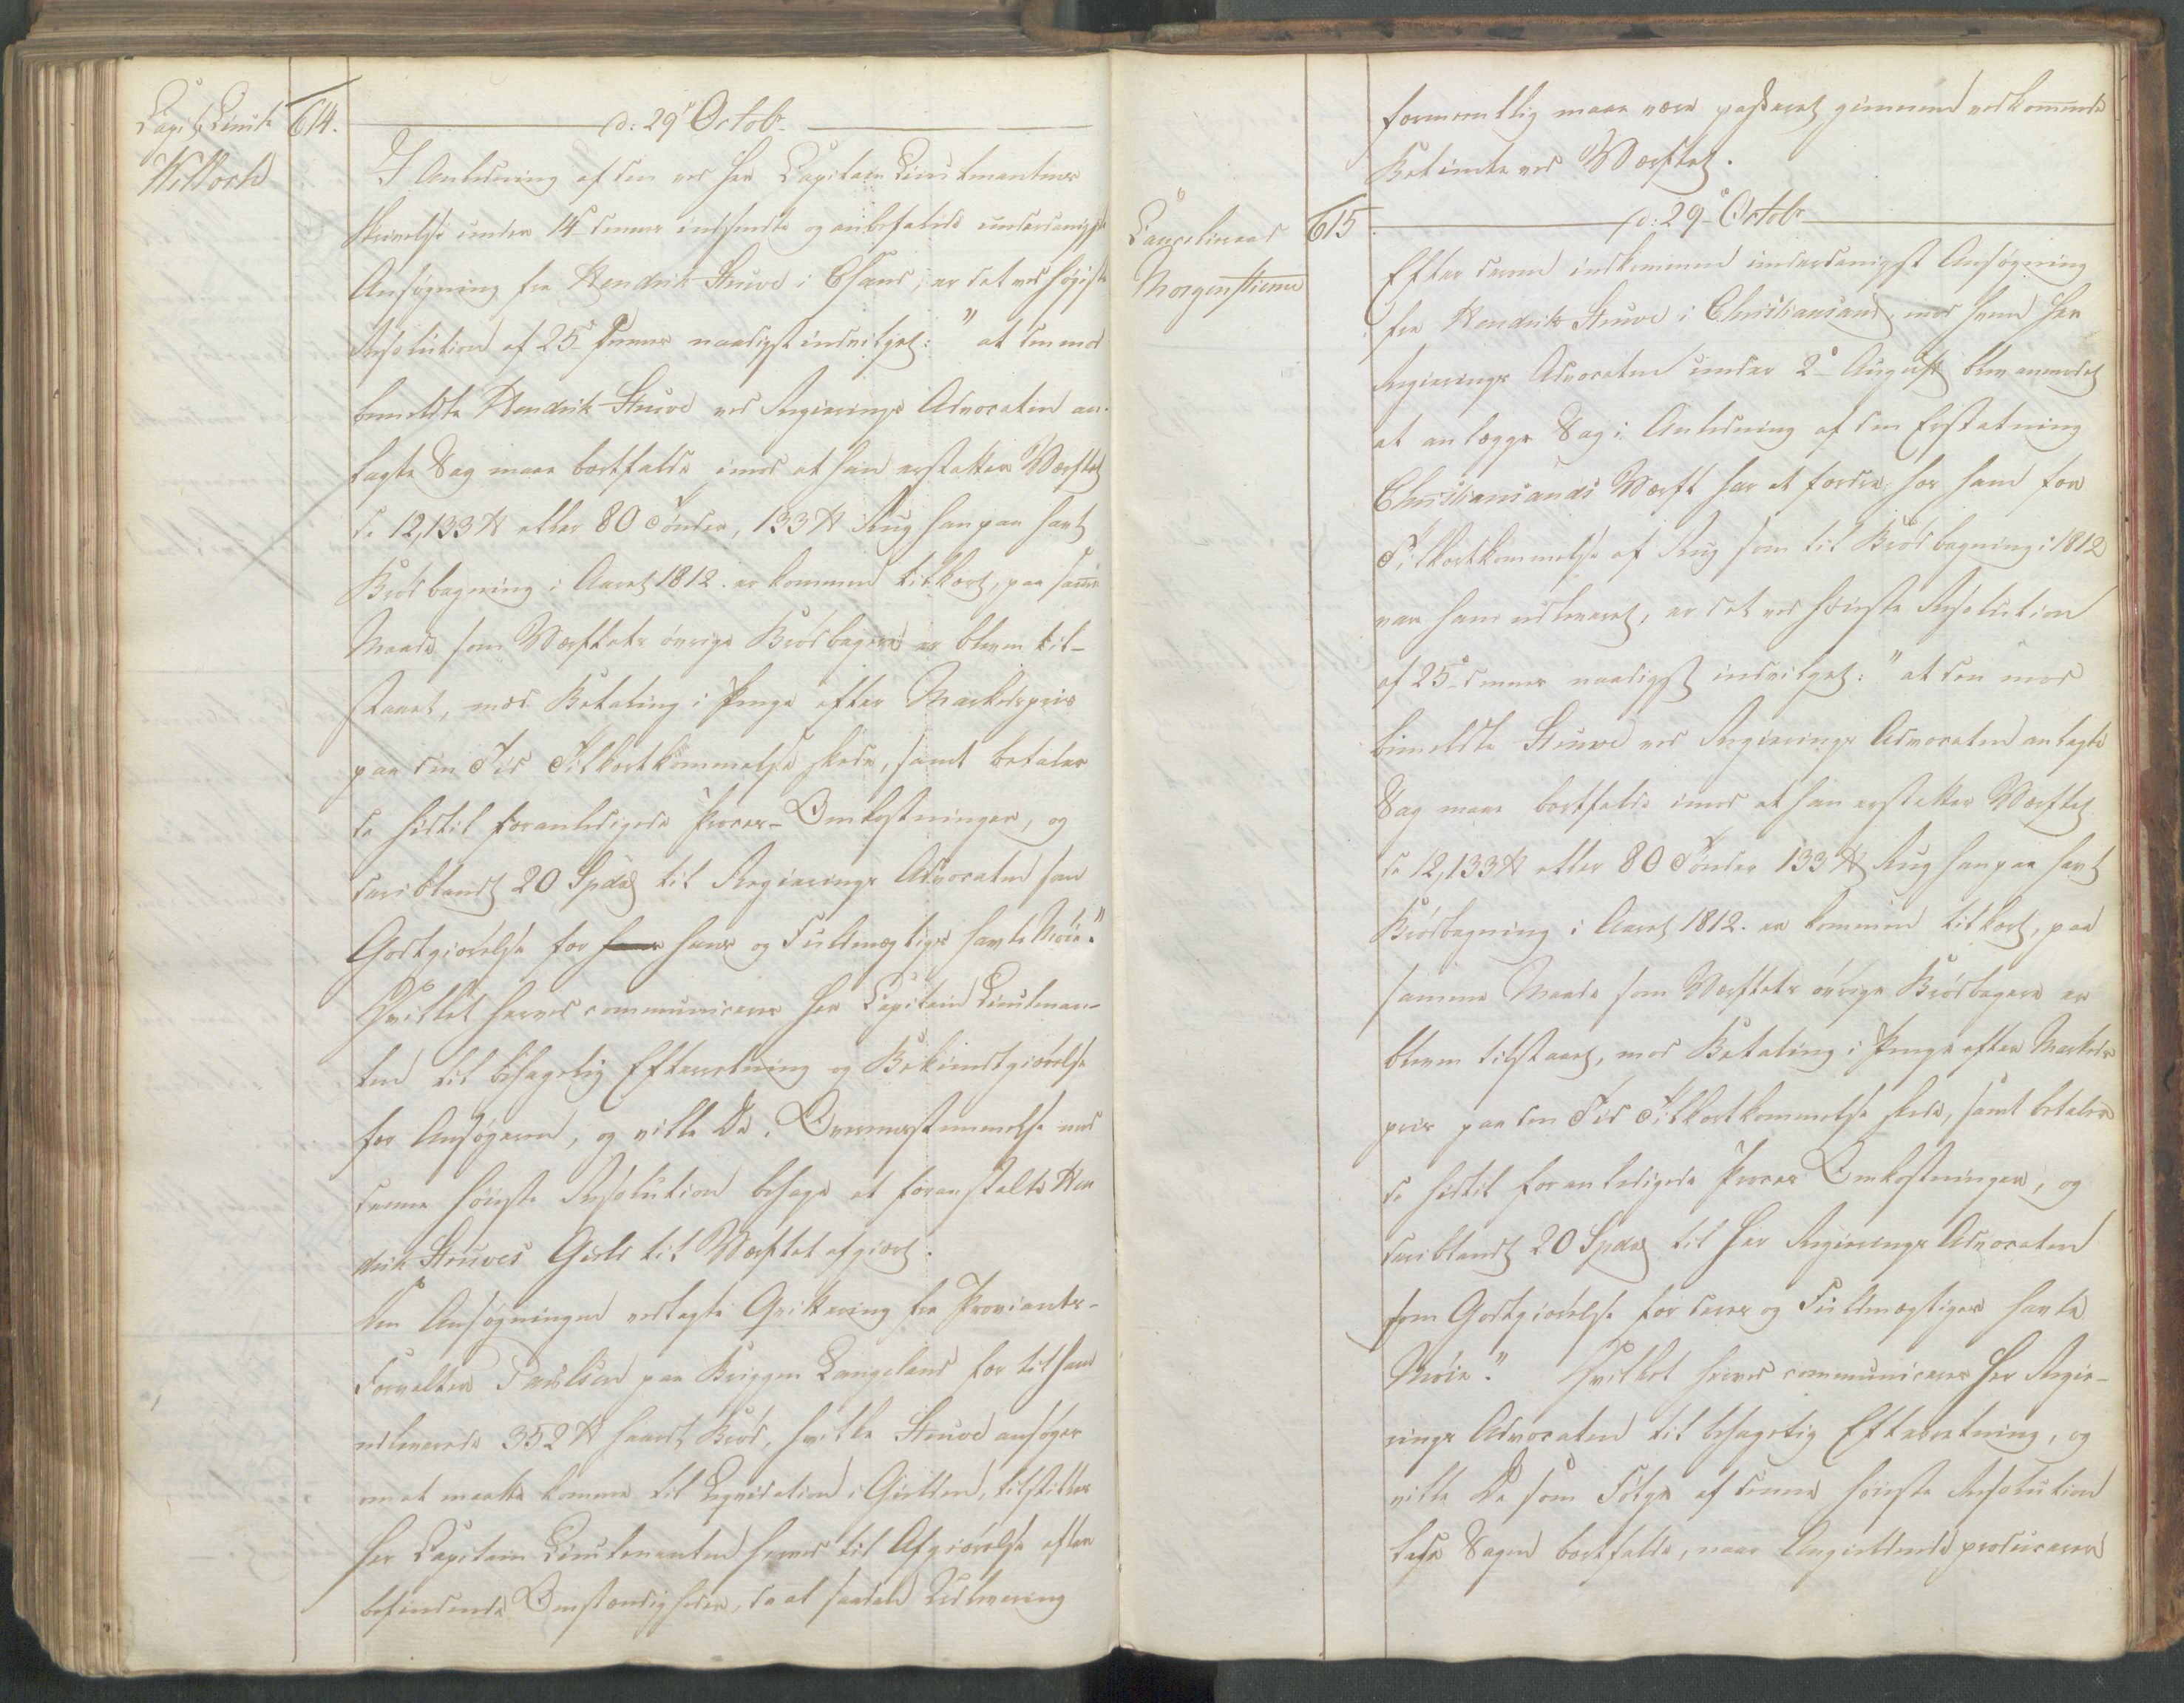 Capit: Lieut:
Willoch
614.
d: 29de Octob.
I Anledning af den ved Her Capitain Lieutenantens
Skrivelse under 14de dennes indsendte og anbefalede underdanigste
Ansøgning fra Hendrik Struve i Chsand, er det ved høieste
Resolution af 25de dennes naadigst indvilget: "at den mod
bemeldte Hendrik Struve ved Regierings Advocaten an-
lagte Sag maae bortfalde imod at han erstatter Værftet
de 12,133 ℔ eller 80 Tønder, 133 ℔ Rug han paa havt
Brødbagning i Aaret 1812. er kommen tilkort, paa samme
Maade som Værftets øvrige Brødbagere er bleven til-
staaet, mod Betaling i Penge efter Markedspris
paa den Tid Tilkortkommelse skede, samt betaler
de hidtil foranledigede Proces-Omkostninger, og
deriblandt 20 Spd til Regierings Advocaten som
Godtgiørelse for hans og Fuldmægtiges havte Møie."
Hvilket herved communiceres Her Capitain Lieutenan-
ten til behagelig Efterretning og Bekiendtgiørelse
for Ansøgeren, og ville De i Overeensstemmelse med
denne høieste Resolution behage at foranstalte Hen
drik Struves Gield til Værftet afgiort.
Den Ansøgningen vedlagte Qvittering fra Proviants-
Forvalter Paulsen paa Briggen Langeland for til ham
udleverede 352 ℔ haardt Brød, hvilke Struve ansøger
om at maatte komme til Liqvidation i Gielden, tilstilles
Her Capitain Lieutenanten herved til Afgiørelse efter
befindende Omstændigheder, da at saadan Udlevering
formeentlig maae være passeret giennem vedkommende
Betiente ved Værftet.
Cancelieraad
Morgenstierne
615
d: 29de Octob
Efter derom indkommen underdanigst Ansøgning
fra Hendrik Struve i Christiansand, mod hvem Her
Regierings Advocaten under 2de August blev anmodet
at anlægge Sag i Anledning af den Erstatning
Christiansands Værft har at fordre hos ham for
Tilkortkommelse af Rug som til Brødbagning i 1812
var ham udleveret, er det ved høieste Resolution
af 25de dennes naadigst indvilget: "at den mod
bemeldte Struve ved Regierings Advocaten anlagte
Sag maae bortfalde imod at han erstatter Værftet
de 12,133 ℔ eller 80 Tønder 133 ℔ Rug han paa havt
Brødbagning i Aaret 1812. er kommen tilkort, paa
samme Maade som Værftets øvrige Brødbagere er
bleven tilstaaet, mod Betaling i Penge efter Markeds
pris paa den Tid Tilkortkommelse skede, samt betaler
de hidtil foranledigede Proces Omkostninger, og
deriblandt 20 Spd til Her Regierings Advocaten
som Godtgiørelse for deres og Fuldmægtiges havte
Møie." Hvilket herved communiceres Her Regie-
rings Advocaten til behagelig Efterretning, og
ville De som Følge af denne høieste Resolution
lade Sagen bortfalde, naar Angieldende producerer